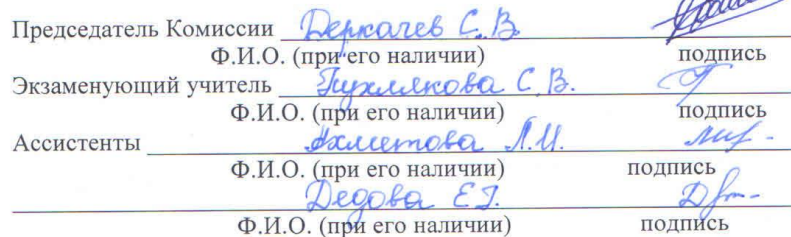 Председатель Комиссии Деркачев С.В.
Ф.И.О. (при его наличии) подпись
Экзаменующий учитель Пухлякова С.В.
Ф.И.О. (при его наличии) подпись
Ассистенты Ахметова Л.И.
Ф.И.О. (при его наличии) подпись
Дедова Е.Г.
Ф.И.О. (при его наличии) подпись